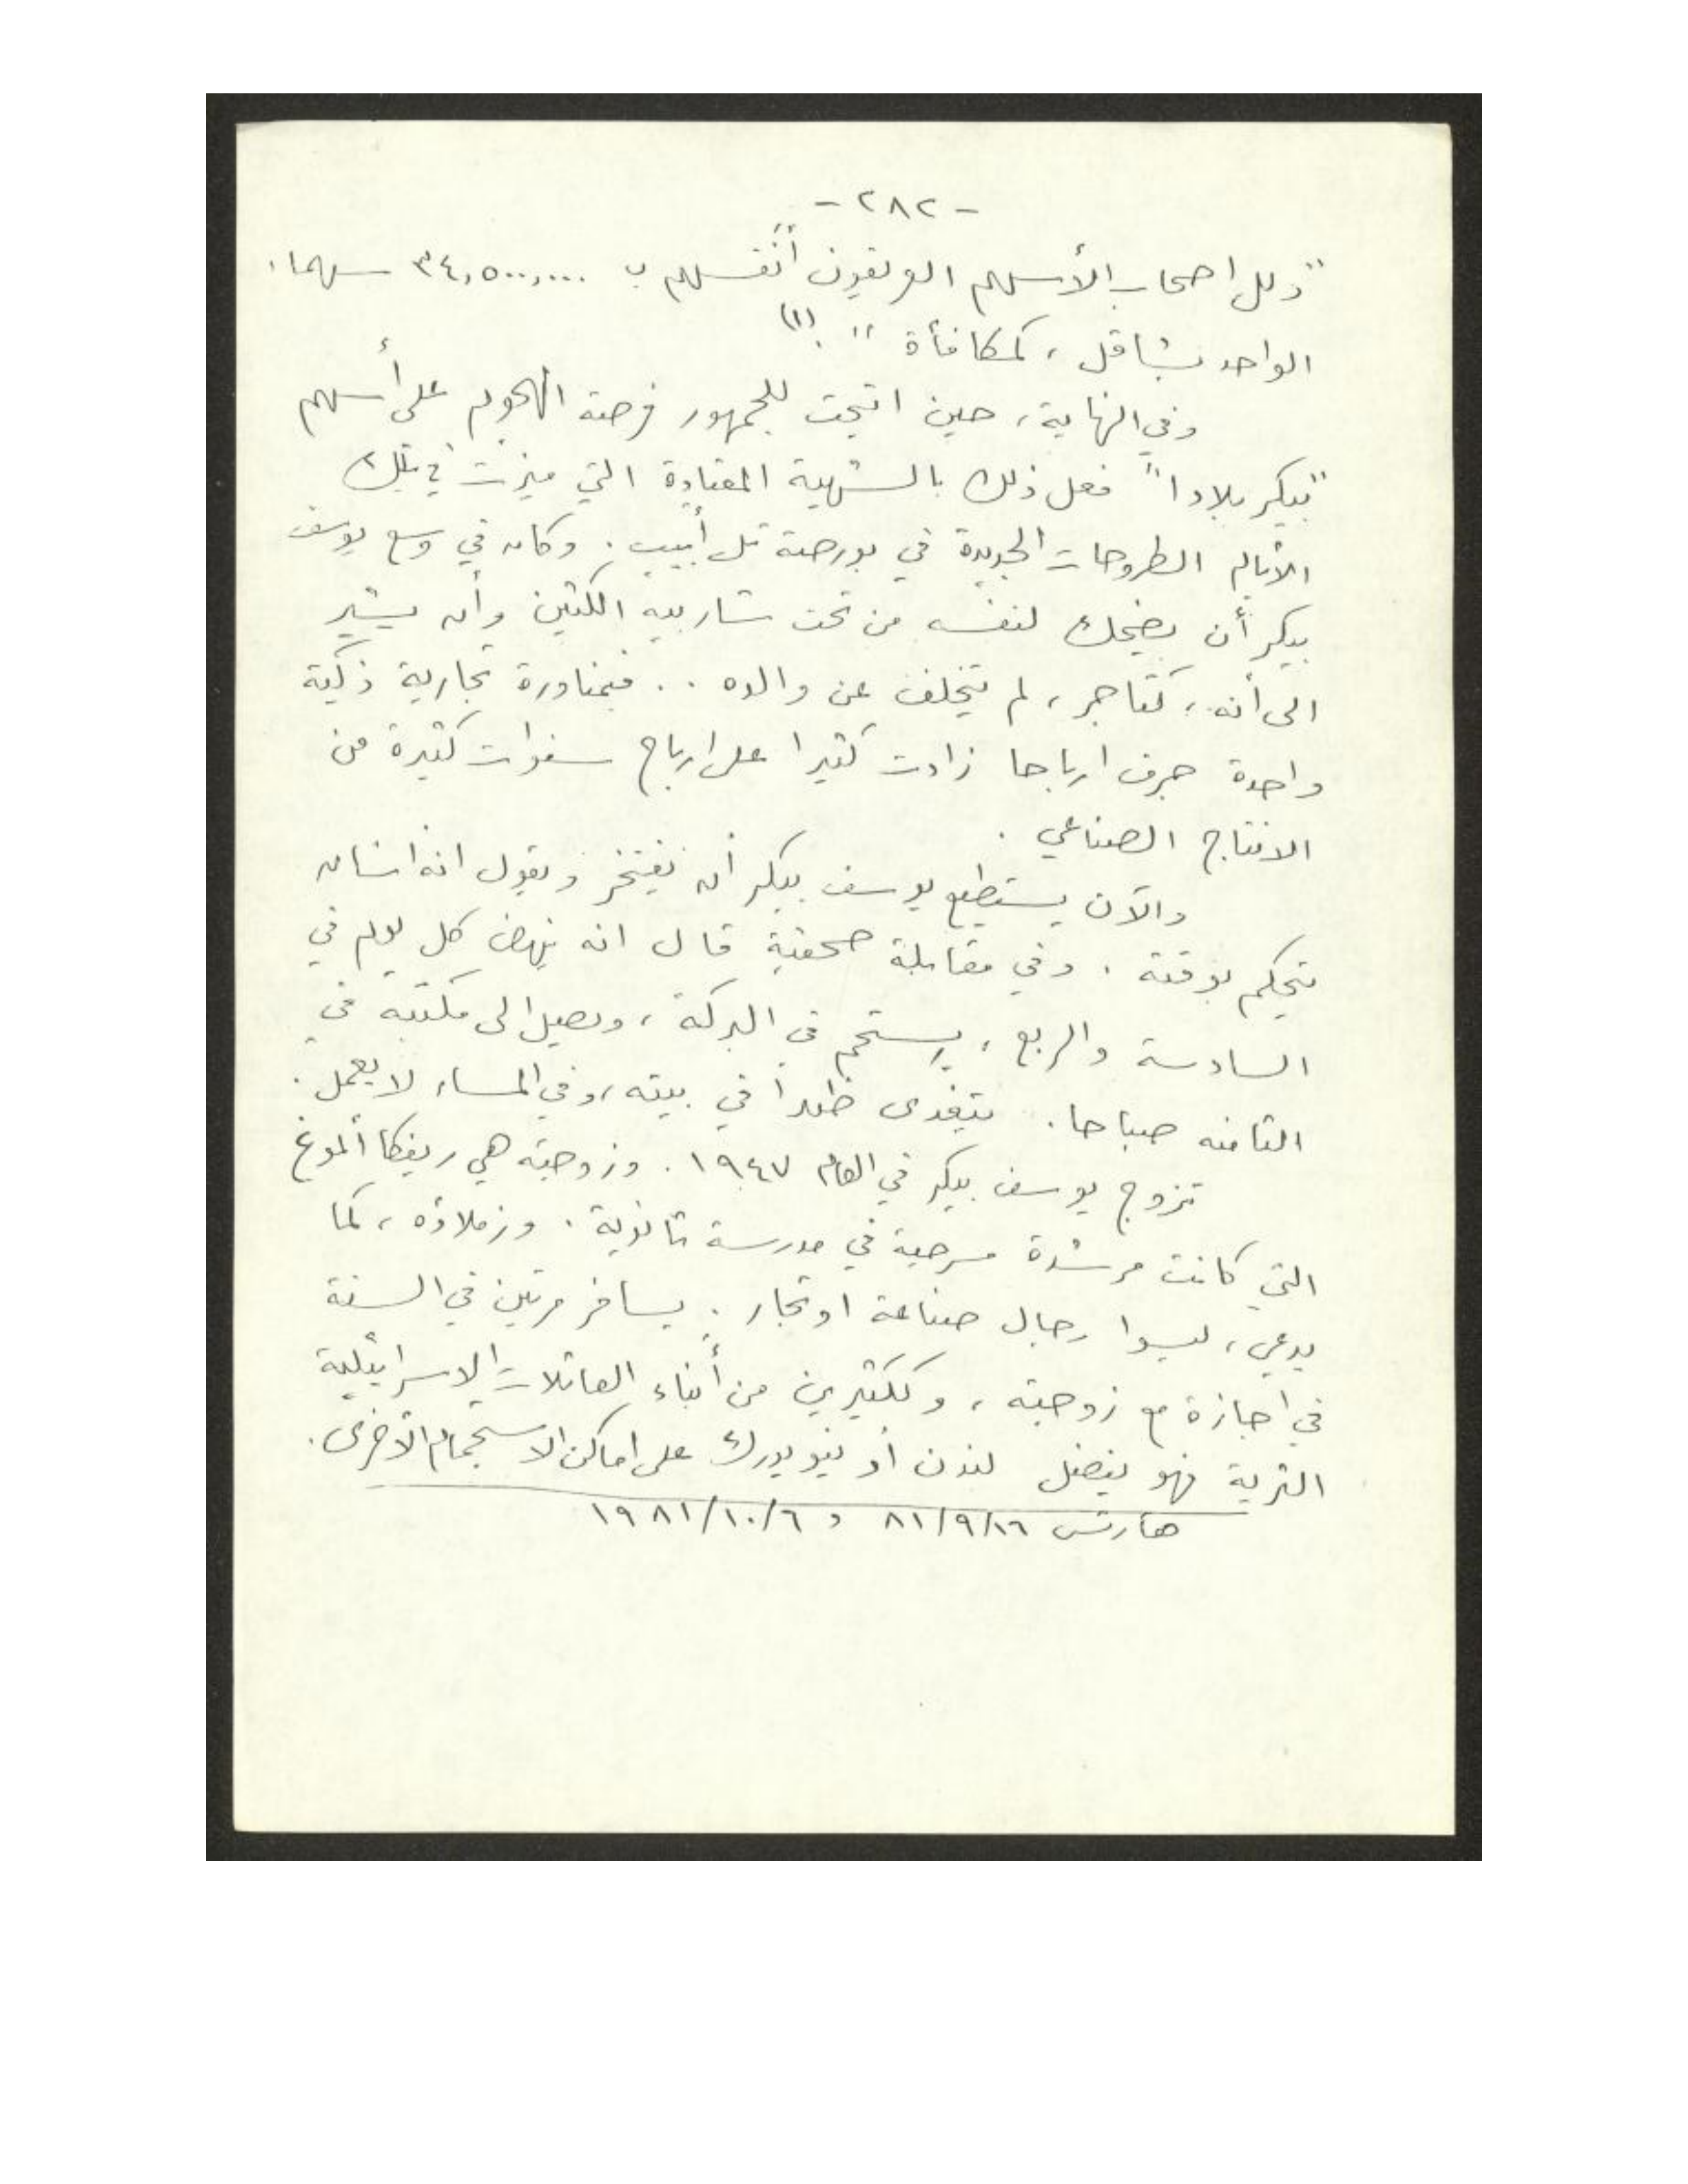 - ٢٨٢ -
"دلل اصحاب الأسهم العريقون أنفسهم ب ٣٤,٥٠٠,٠٠٠ سهما،
الواحد بشاقل، كمكافأة". (١)
وفي النهاية، حين اتيحت للجمهور فرصة الهجوم على أسهم
"بيكر بلادا" فعل ذلك بالشهية المعتادة التي ميزت في تلك
الأيام الطروحات الجديدة في بورصة تل أبيب. وكان في وسع يوسف
بيكر أن يضحك لنفسه من تحت شاربيه الكثين وأن يشير
الى أنه، كتاجر، لم يتخلف عن والده .. فبمناورة تجارية ذكية
واحدة جرف ارباحا زادت كثيرا على ارباح سنوات كثيرة من
الانتاج الصناعي .
والآن يستطيع يوسف بيكر أن يفتخر ويقول انه انسان
يتحكم بوقته . وفي مقابلة صحفية قال انه ينهض كل يوم في
السادسة والربع، يستحم في البركة، ويصل الى مكتبه في
الثامنه صباحا. يتغدى ظهرا في بيته، وفي المساء لا يعمل.
تزوج يوسف بيكر في العام ١٩٤٧. وزوجته هي ريفكا ألموغ
التي كانت مرشدة مسرحية في مدرسة ثانوية. وزملاؤه، كما
يدعي، ليسوا رجال صناعة او تجار. يسافر مرتين في السنة
في اجازة مع زوجته، وككثيرين من أبناء العائلات الاسرائيلية
الثرية فهو يفضل لندن أو نيويورك على اماكن الاستجمام الأخرى.
هارتس ٨١/٩/١٦ و ١٩٨١/١٠/٦